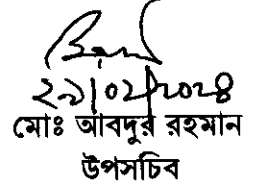 ২৯/০২/২০২৪
মোঃ আবদুর রহমান
উপসচিব